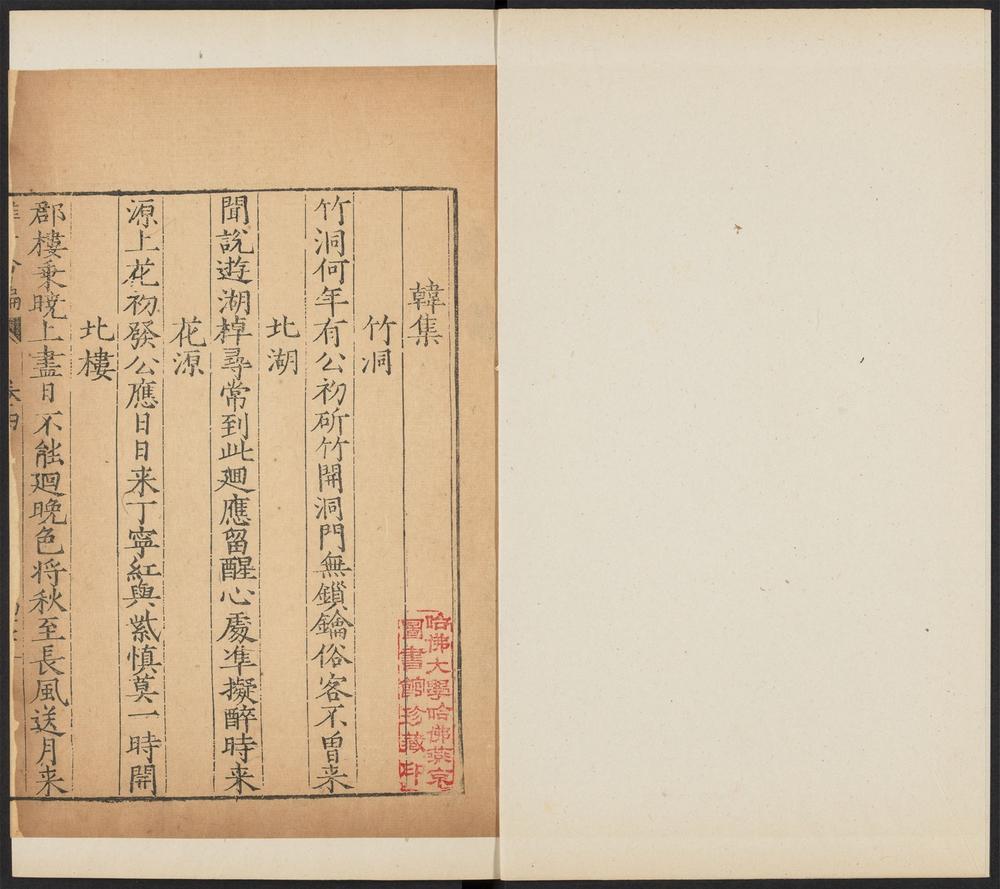 韓集
竹洞
竹洞何年有公初斫竹開洞門無鎖鑰俗客不曽来
北湖
聞説遊湖棹尋常到此廻應留醒心處凖擬醉時来
花源
源上花初發公應日日来丁寧紅與紫慎莫一時開
北樓
郡樓乗晩上盡日不能廻晚色将秋至長風送月来
哈佛大學哈佛燕京
圖書館珍藏印